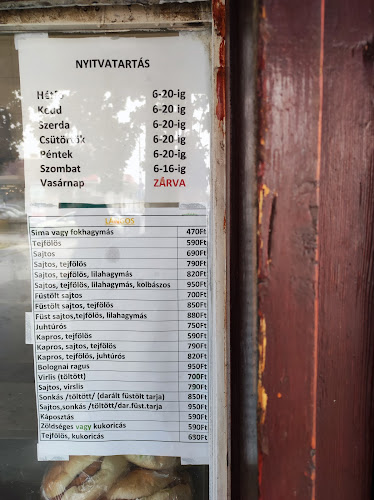 NYITVATARTÁS
Hétfő 6-20-ig
Kedd 6-20-ig
Szerda 6-20-ig
Csütörtök 6-20-ig
Péntek 6-20-ig
Szombat 6-16-ig
Vasárnap ZÁRVA
LÁNGOS
Sima vagy fokhagymás 470Ft
Tejfölös 590Ft
Sajtos 690Ft
Sajtos, tejfölös 790Ft
Sajtos, tejfölös, lilahagymás 820Ft
Sajtos, tejfölös, lilahagymás, kolbászos 950Ft
Füstölt sajtos 700Ft
Füstölt sajtos, tejfölös 850Ft
Füst sajtos,tejfölös, lilahagymás 880Ft
Juhtúrós 750Ft
Kapros, tejfölös 590Ft
Kapros, sajtos, tejfölös 790Ft
Kapros, tejfölös, juhtúrós 820Ft
Bolognai ragus 950Ft
Virlis (töltött) 700Ft
Sajtos, virslis 790Ft
Sonkás /töltött/ (darált füstölt tarja) 850Ft
Sajtos,sonkás /töltött/dar.füst.tarja 950Ft
Káposztás 590Ft
Zöldséges vagy kukoricás 590Ft
Tejfölös, kukoricás 630Ft